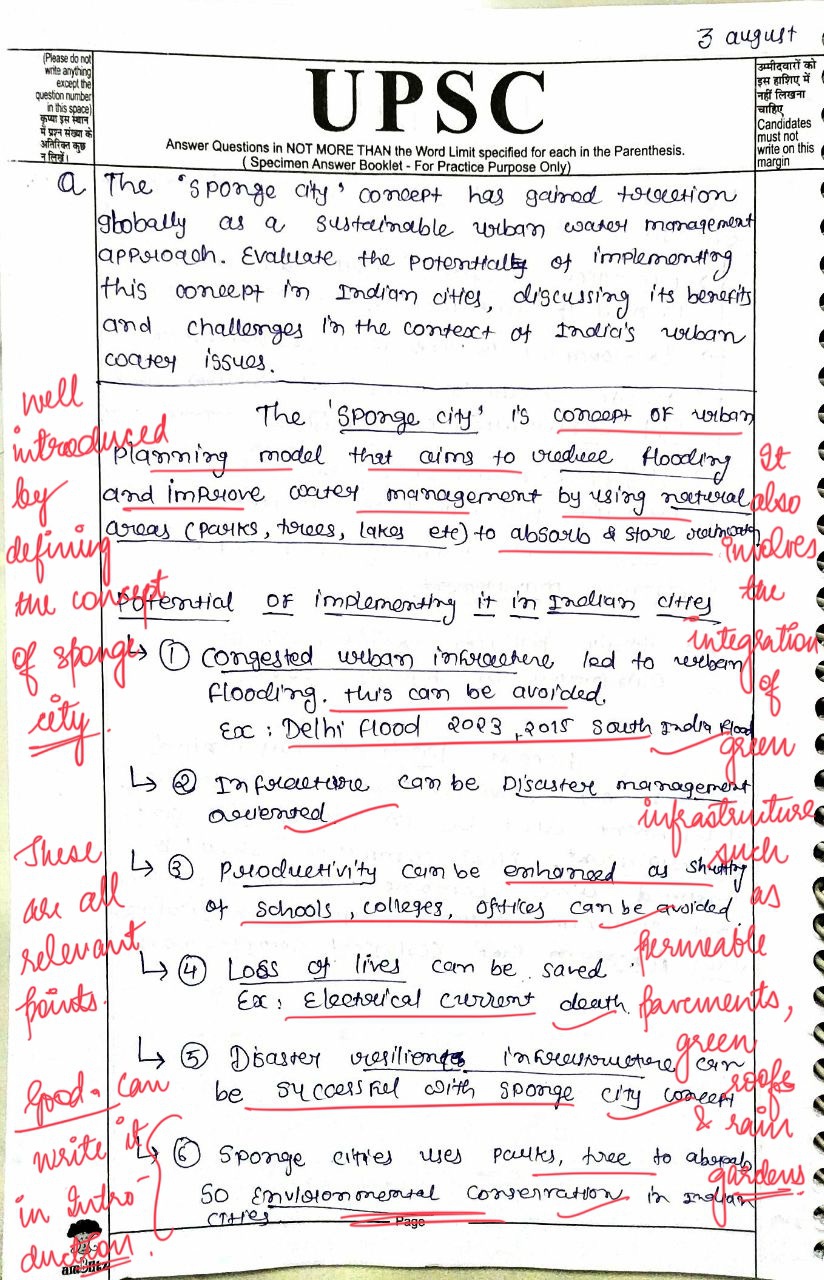 3 august
(Please do not
write anything
except the
question number
in this space)
कृपया इस स्थान
में प्रश्न संख्या के
अतिरिक्त कुछ
न लिखें।
UPSC
Answer Questions in NOT MORE THAN the Word Limit specified for each in the Parenthesis.
( Specimen Answer Booklet - For Practice Purpose Only)
उम्मीदवारों को
इस हाशिए में
नहीं लिखना
चाहिए
Candidates
must not
write on this
margin
Q The 'Sponge city' concept has gained traction
globally as a sustainable urban water management
approach. Evaluate the potential of implementing
this concept in Indian cities, discussing its benefits
and challenges in the context of India's urban
water issues.
The 'Sponge city' is concept of urban
planning model that aims to reduce flooding
and improve water management by using natural
areas (parks, trees, lakes etc) to absorb & store rainwater
Potential of implementing it in Indian cities
① Congested urban infracture led to urban
flooding. this can be avoided.
Ex : Delhi flood 2023, 2015 South India flood
② Infracture can be Disaster management
oriented
③ Productivity can be enhanced as shutting
of schools, colleges, offices can be avoided.
④ Loss of lives can be saved
Ex : Electrical current death.
⑤ Disaster resilient infrastructure can
be successful with sponge city concept
⑥ Sponge cities uses parks, tree to
so Environmental Conservation in Indian
cities.
Page
well
introduced
by
defining
the concept
of sponge
city.
These
are all
relevant
points.
Good. can
write it
in Intro-
duction.
It
also
involves
the
integration
of
green
infrastruture
such
as
permeable
pavements,
green
roofs
& rain
gardens